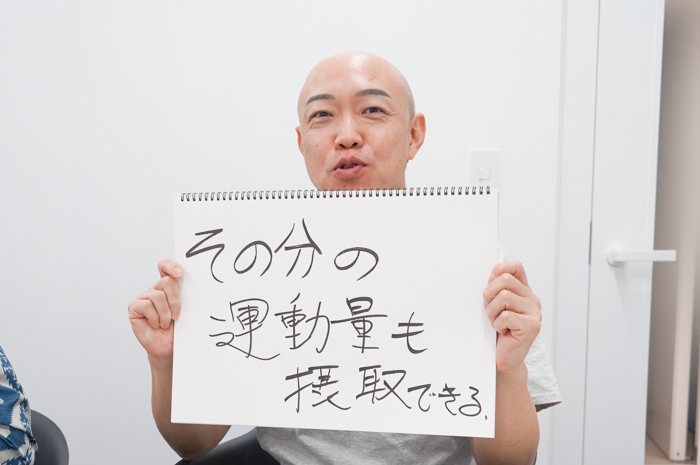 その分の
運動量も
摂取できる、